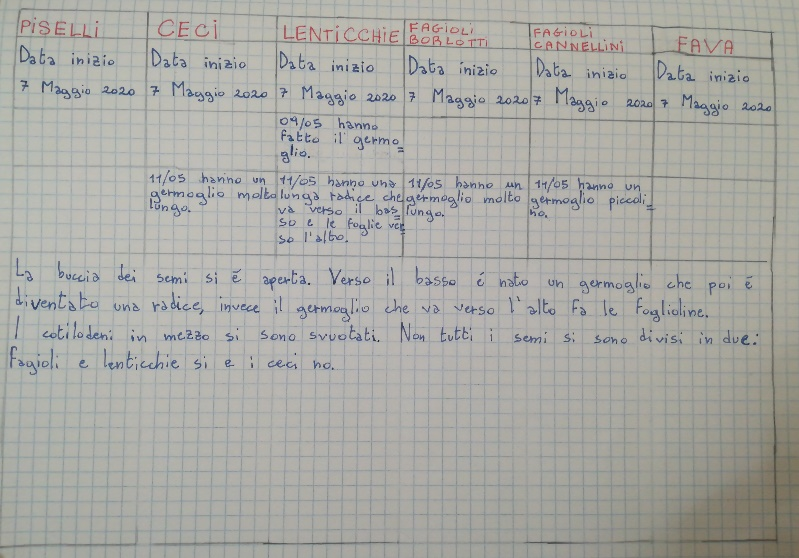 PISELLI
CECI
LENTICCHIE
FAGIOLI
BORLOTTI
FAGIOLI
CANNELLINI
FAVA
Data inizio
7 Maggio 2020
Data inizio
7 Maggio 2020
Data inizio
7 Maggio 2020
Data inizio
7 Maggio 2020
Data inizio
7 Maggio 2020
Data inizio
7 Maggio 2020
09/05 hanno
fatto il germo=
glio.
11/05 hanno un
germoglio molto
lungo.
11/05 hanno una
lunga radice che
va verso il bas=
so e le foglie ver=
so l'alto.
11/05 hanno un
germoglio molto
lungo.
11/05 hanno un
germoglio piccoli=
no.
La buccia dei semi si é aperta. Verso il basso é nato un germoglio che poi é
diventato una radice, invece il germoglio che va verso l'alto fa le foglioline.
I cotilodeni in mezzo si sono svuotati. Non tutti i semi si sono divisi in due:
fagioli e lenticchie si e i ceci no.